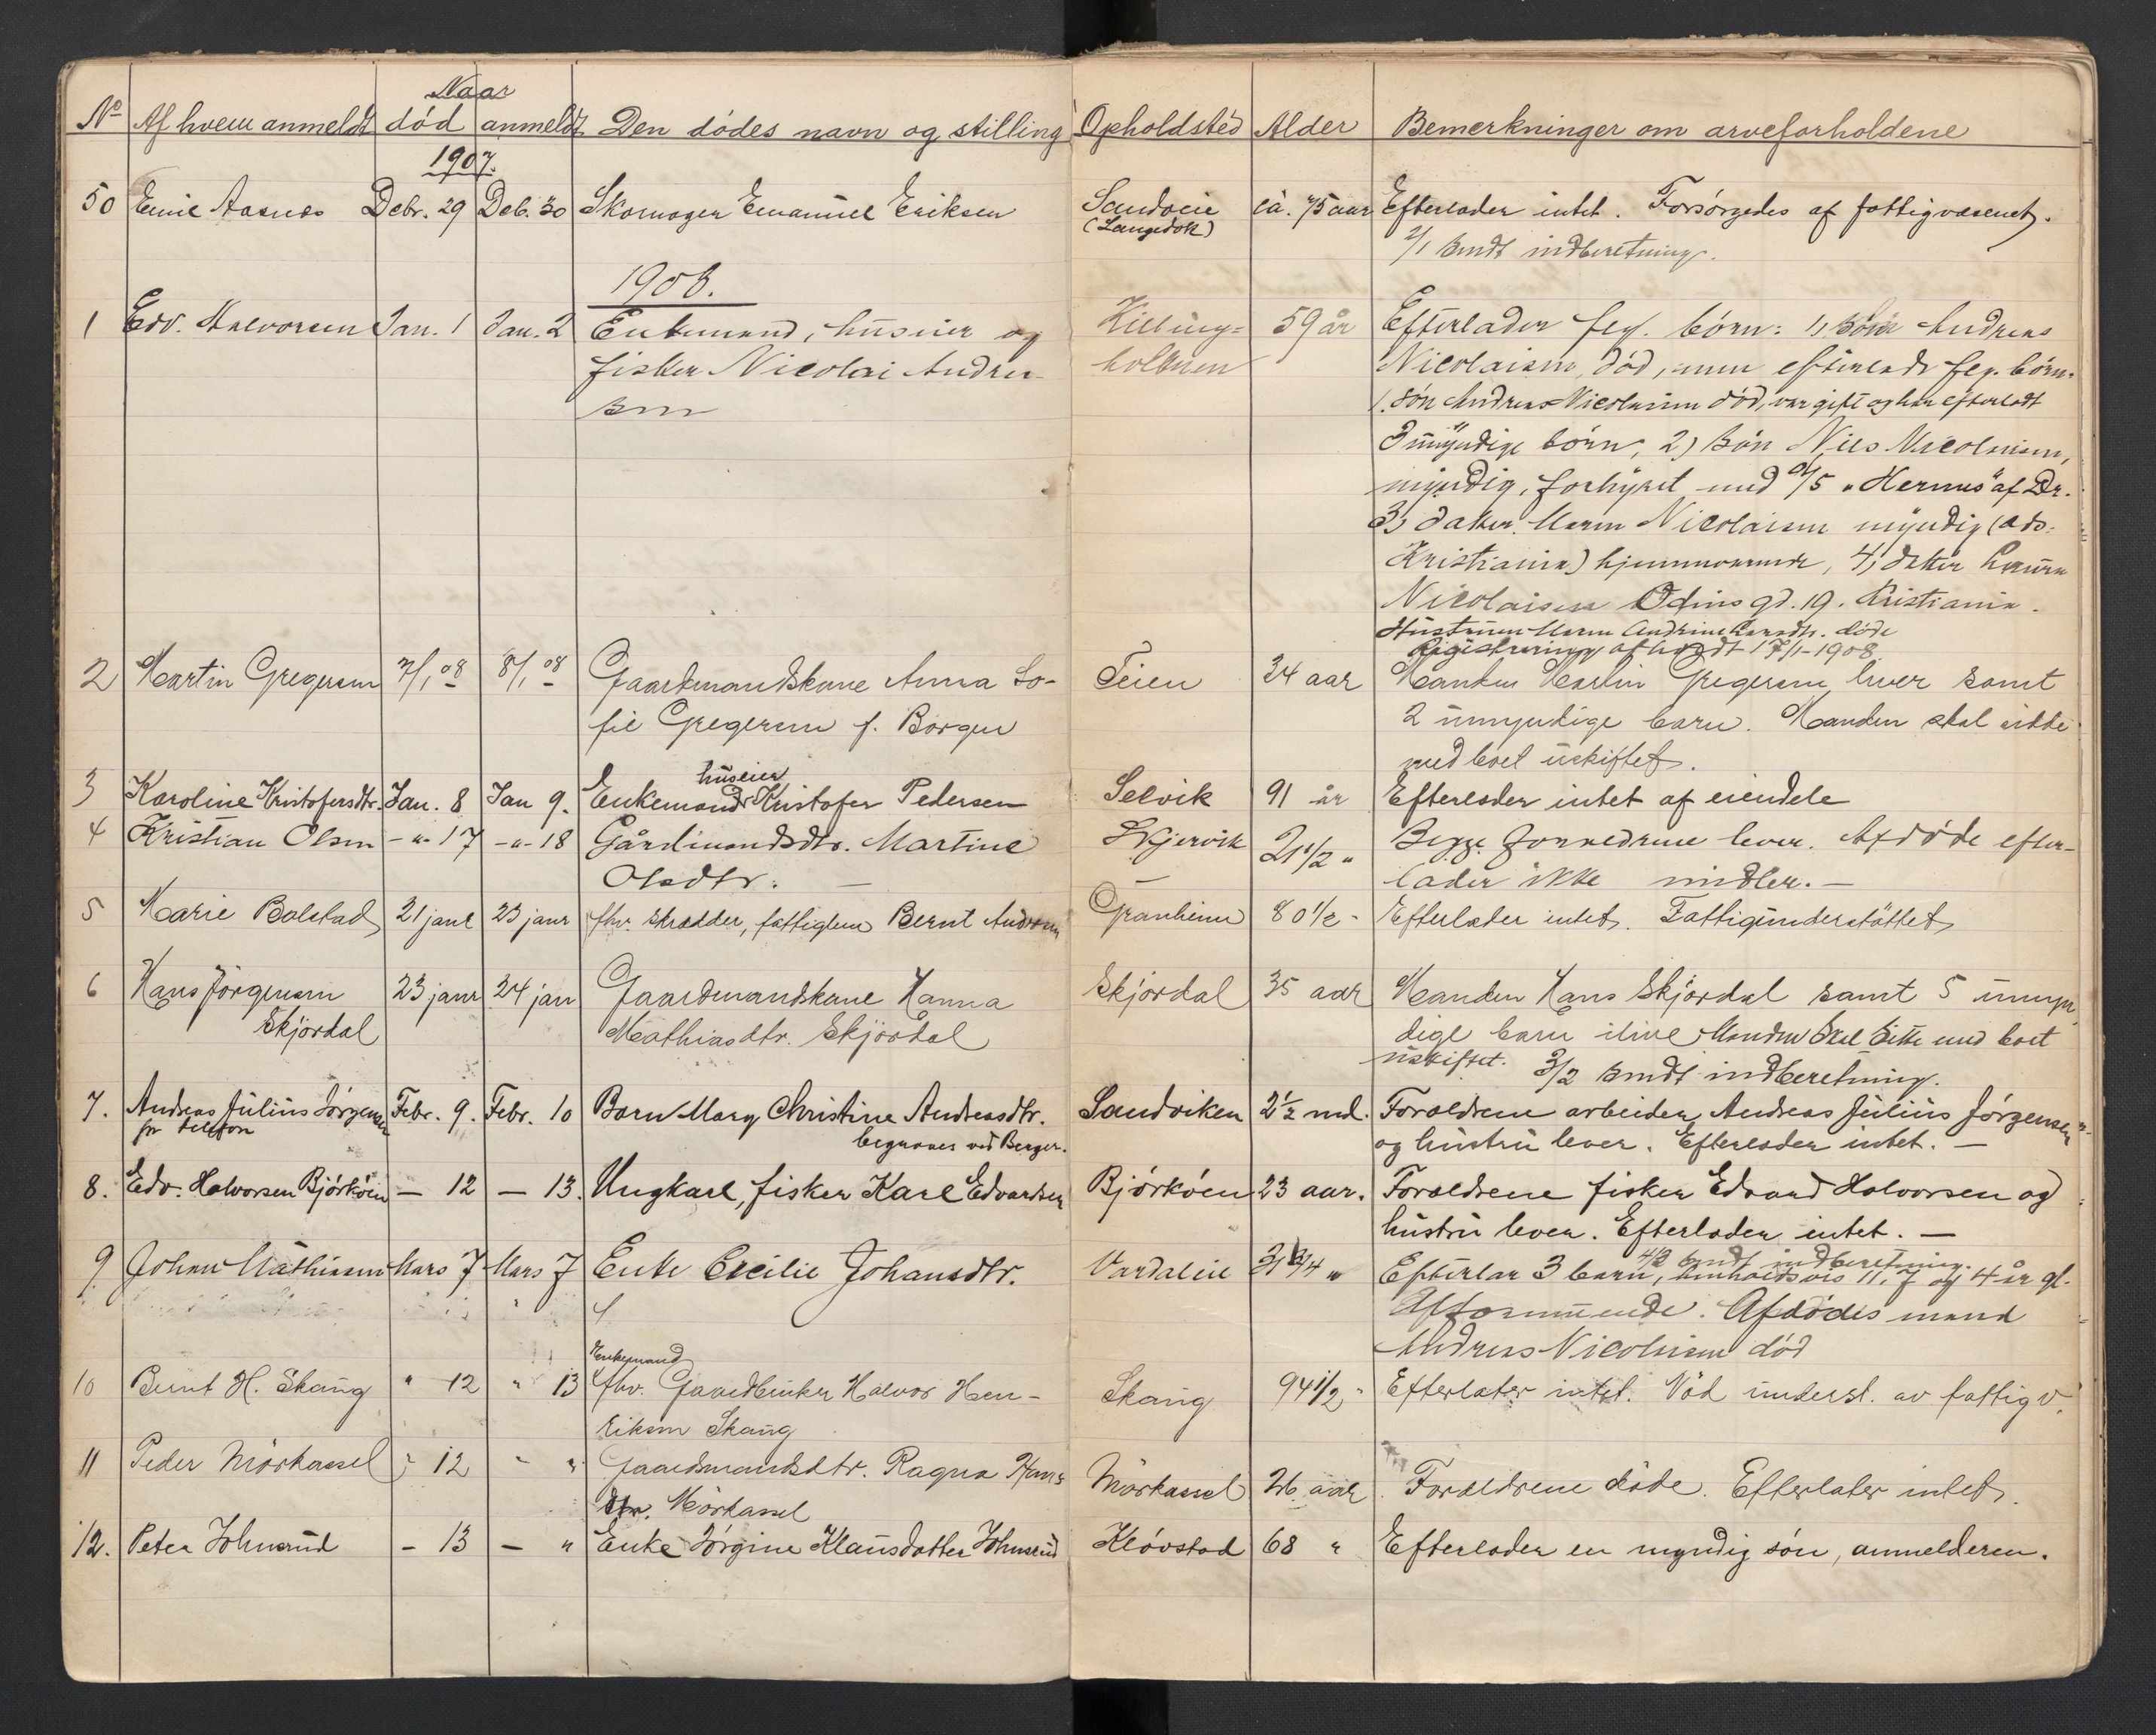 Naar
No Af hvem anmeldt død anmeldt Den dødes navn og stilling Opholdsted Alder Bemerkninger om arveforholdene
1907.
50 Emil Aasnes Debr. 29 Deb. 30 Skomager Emanuel Eriksen Sandveie ca. 75 aar Efterlader intet. Forsørgedes af fattigvæsenet.
(Langedok) 2/1 sendt indberetning.
1908.
1 Edv. Halvorsen Jan. 1 Jan. 2 Enkemand, huseier og Killing= 59 år Efterlader flg. børn: 1, søn Andreas
fisker Nicolai Andrea- holmen Nicolaisen, død, men efterladt flg. børn.
sen 1. søn Andreas Nicolaisen død, var gift og har efterladt
3 umyndige børn, 2) søn Nils Nicolaisen,
myndig, forhyret med D/S "Hermes" af Dr.
3, datter Maren Nicolaisen myndig (ads.
Kristiania) hjemmeværende, 4, datter Laura
Nicolaisen Odins gd. 19. Kristiania.
Hustruen Maren Andrine Larsdtr. døde
Registrering afholdt 17/1-1908.
2 Martin Gregersen 7/1 08 8/1 08 Gaardmandskone Anna So- Teien 34 aar Manden Martin Gregersen lever samt
fie Gregersen f. Borgen 2 umyndige barn. Manden skal sitte
med boet uskiftet.
huseier
3 Karoline Kristofersdtr. Jan. 8 Jan 9. Enkemand Kristofer Pedersen Selvik 91 år Efterlader intet af eiendele
4 Kristian Olsen -"- 17 -"- 18 Gårdmandsdtr. Martine Skjervik 21 1/2 " Begge forældrene lever. Afdøde efter-
Olsdtr. — lader ikke midler. —
5 Marie Bolstad 21 janr 23 janr fhv. skrædder, fattiglem Bernt Andersen Granheim 80 1/2 - Efterlater intet. Fattigunderstøttet
6 Hans Jørgensen 23 janr 24 jan Gaardmandskone Hanna Skjørdal 35 aar Manden Hans Skjørdal samt 5 umyn
Skjørdal Mathiasdtr. Skjørdal dige barn ilive. Manden skal sitte med boet
uskiftet. 3/2 sendt indberetning.
7. Andreas Julius Jørgensen Febr. 9. Febr. 10 Barn Mary Christine Andreasdtr. Sandviken 2 1/2 md. Forældrene arbeider Andreas Julius Jørgensen
pr telefon begraves ved Berger. og hustru lever. Efterlader intet. —
8. Edv. Halvorsen Bjørkøen — 12 — 13. Ungkarl, fisker Karl Edvardsen Bjørkøen 23 aar. Forældrene fisker Edvard Halvorsen og
hustru lever. Efterlader intet. —
4/3 sendt indberetning.
9. Johan Mathisen Mars 7 Mars 7 Enke Cecilie Johansdtr. Vardalen 31 3/4 " Efterlar 3 barn, henholdsvis 11, 7 og 4 år gl.
Afdødes mand
Andreas Nicolaisen død
Enkemand
10 Bernt H. Skaug " 12 " 13 fhv. Gaardbruker Halvor Hen- Skaug 94 1/2 " Efterlater intet. Nød underst. av fattigv.
riksen Skaug
11 Peder Mørkassel " 12 " " Gaardmandsdtr. Ragna Hans Mørkassel 26 aar Forældrene døde. Efterlater intet.
dtr. Mørkassel
12. Peter Johnsrud - 13 - " Enke Jørgine Klausdatter Johnsrud Kløvstad 68 " Efterlader en myndig søn, anmelderen.